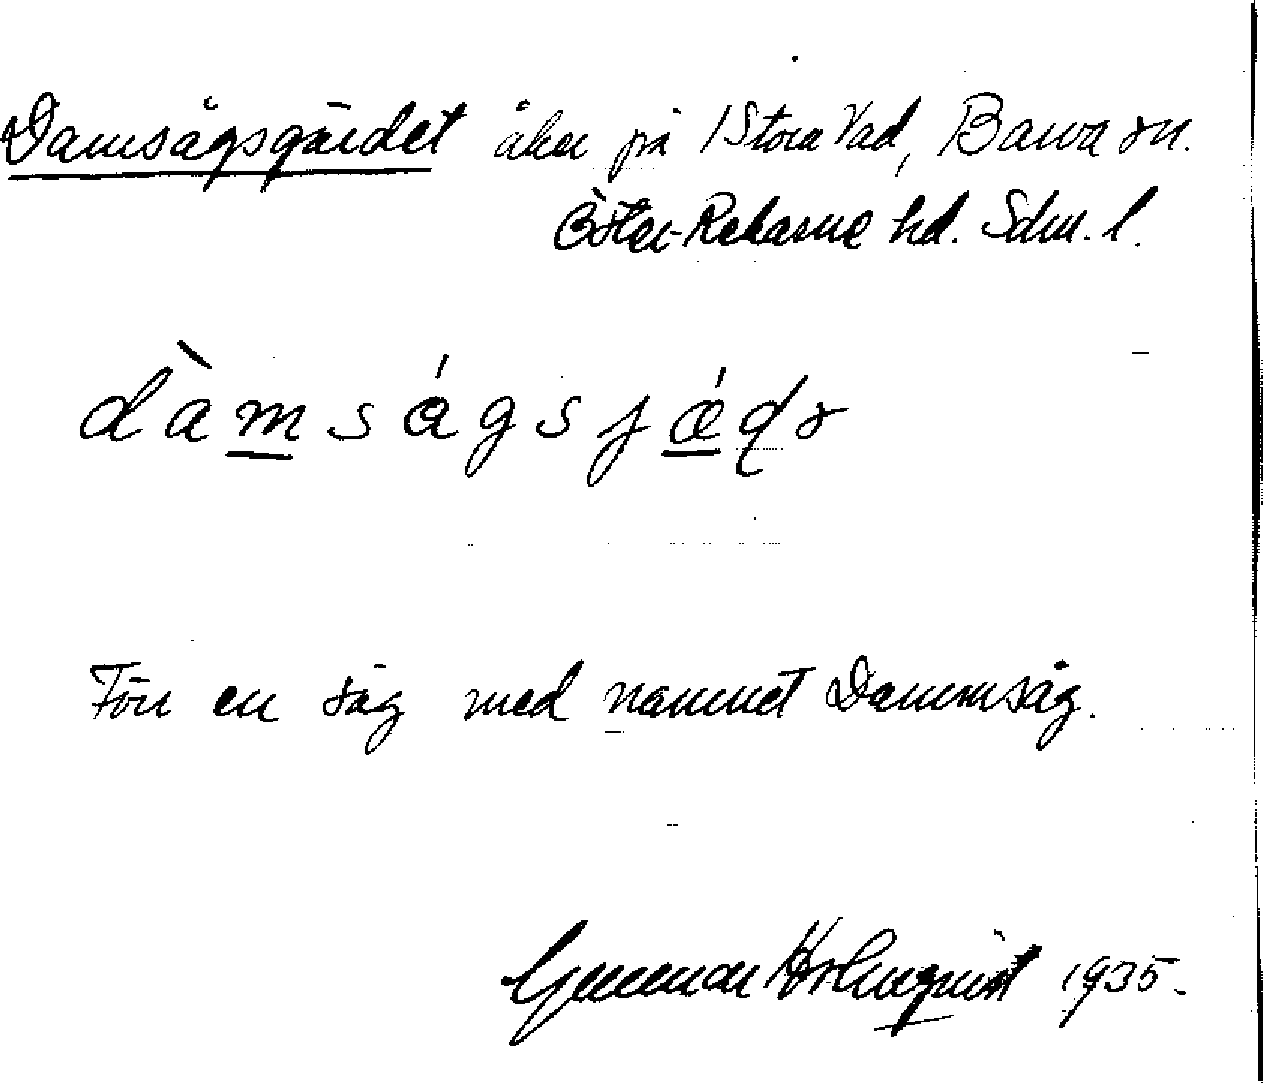 Damsågsgärdet åker på 1 Stora Vad, Barva sn.
Öster-Rekarne hd. Sdm. l.
dàmságsjǽḍə
Förr en såg med namnet Dammsåg.
Gunnar Holmqvist 1935.